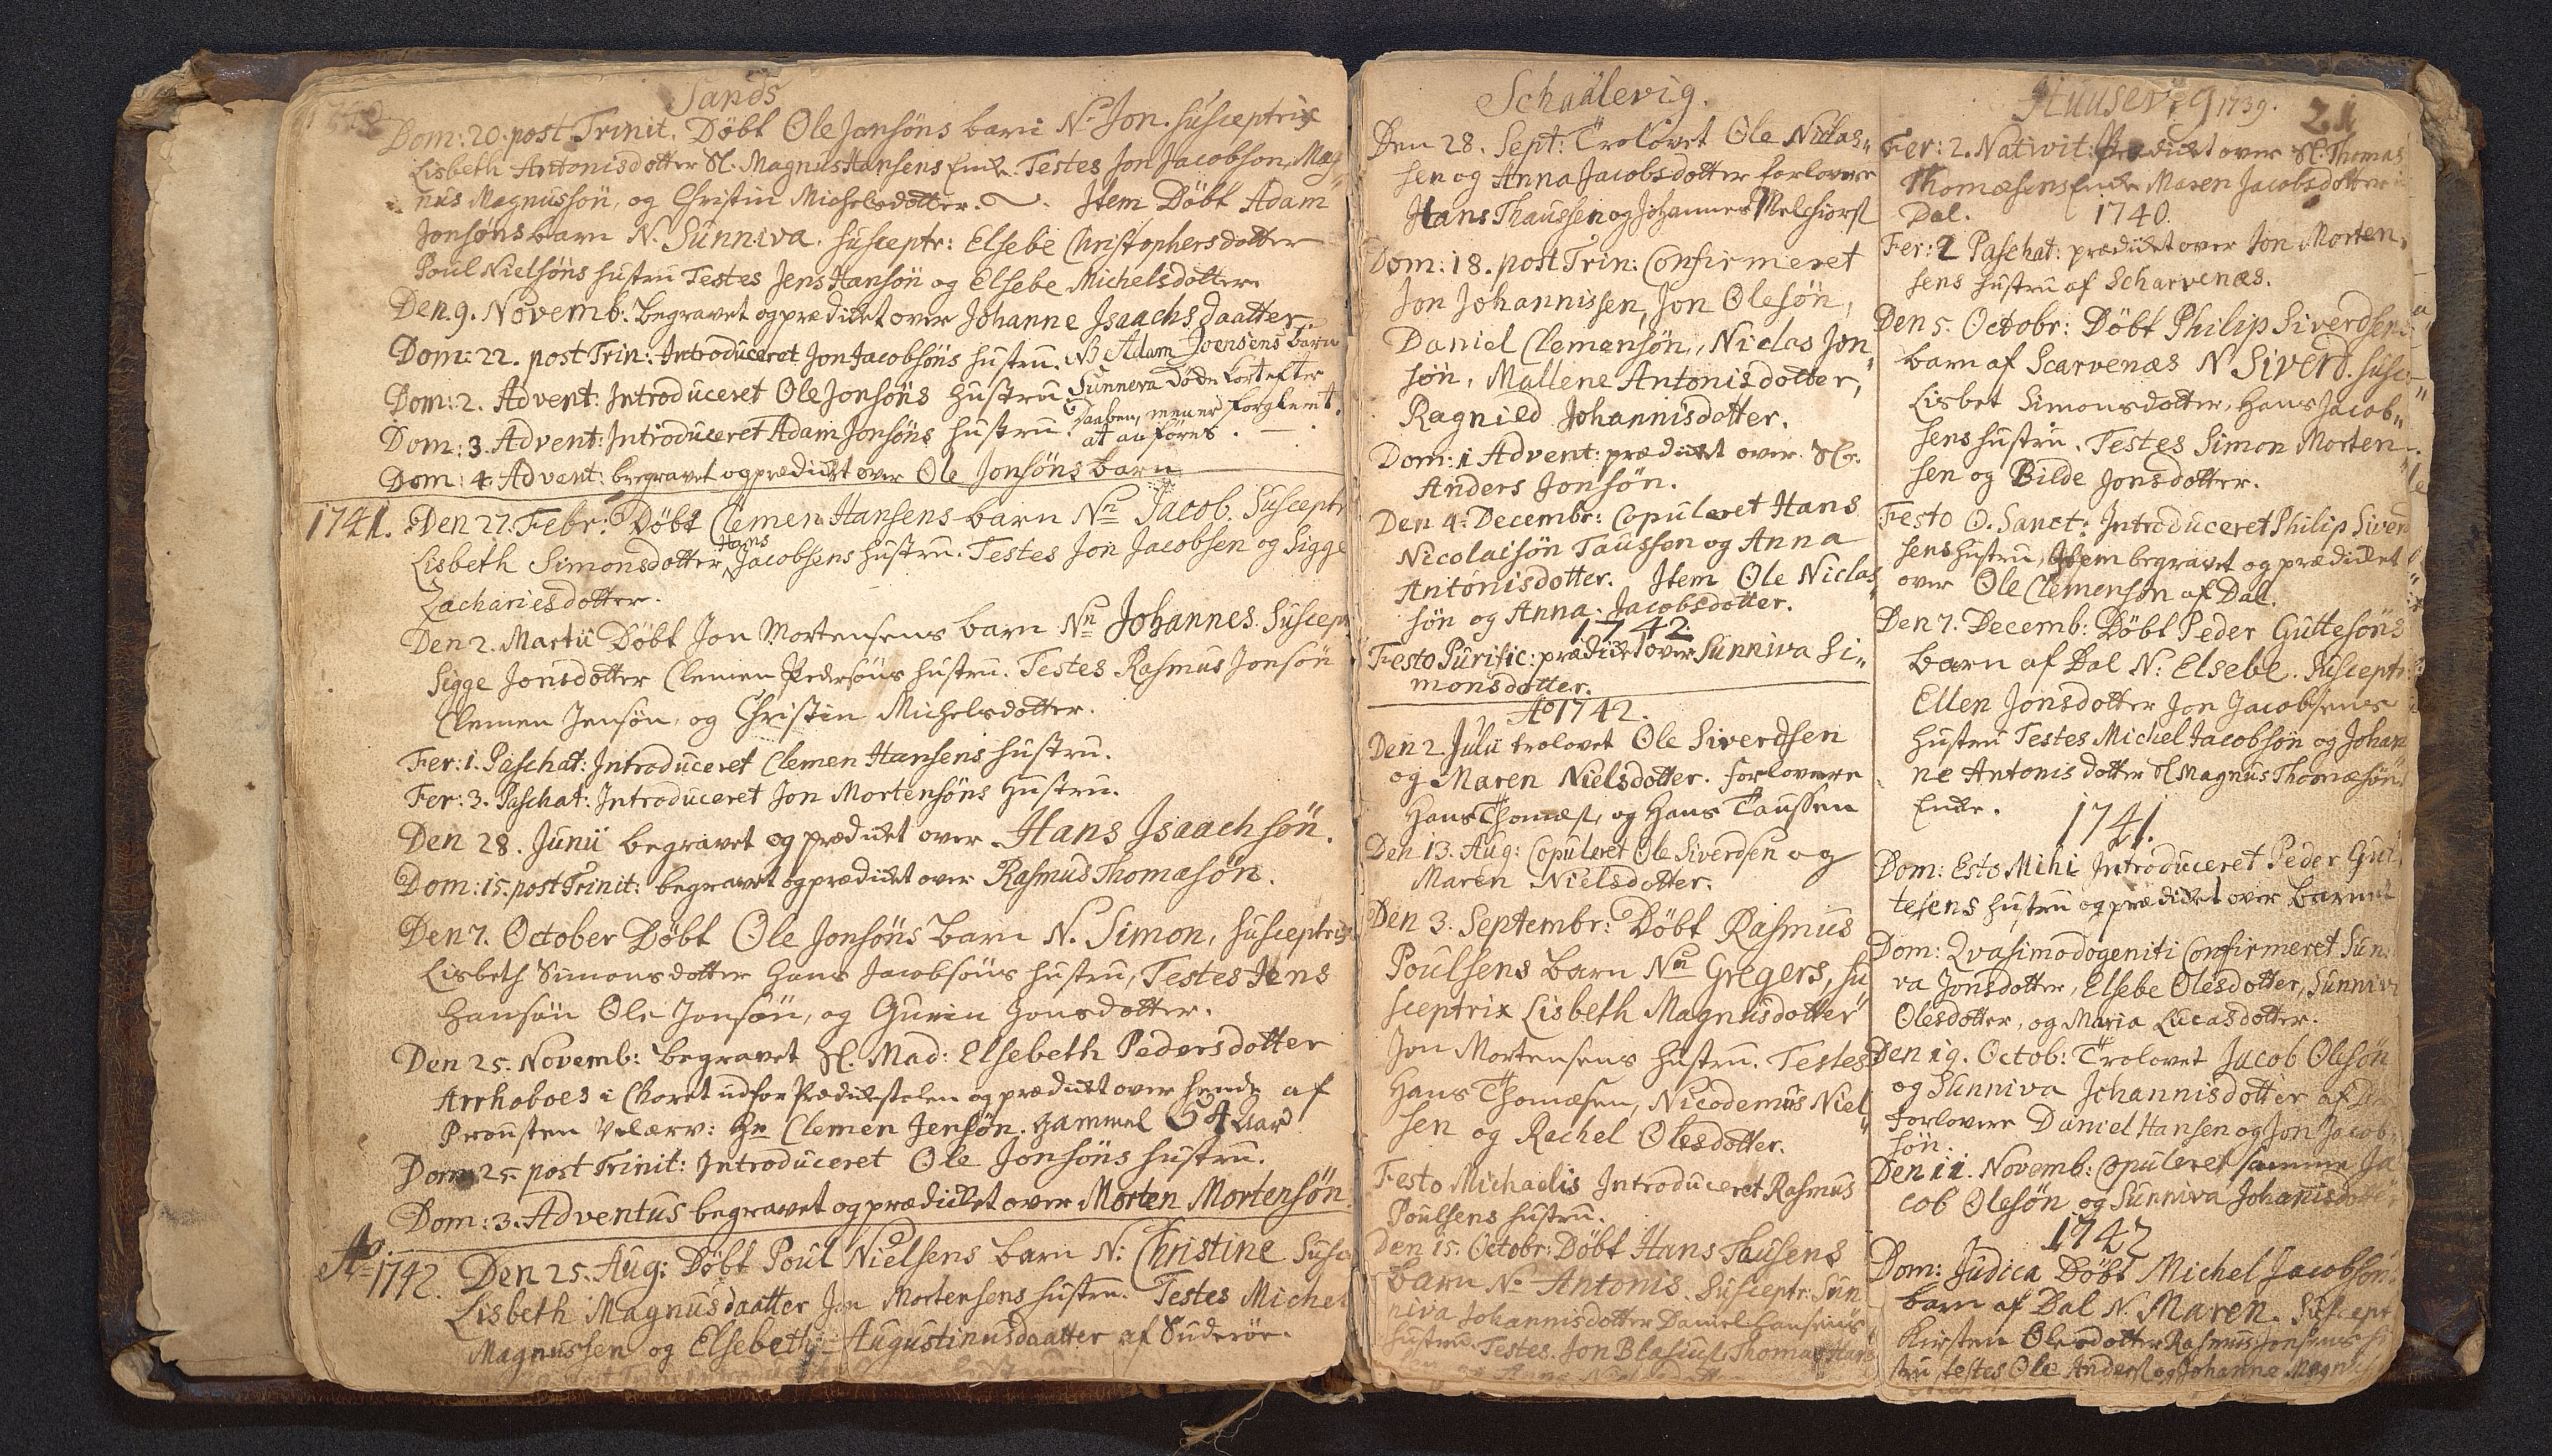 Sands
Dom: 20. post Trinit. Döbt Ole Jonsöns barn N. Jon. Susceptrix
Lisbeth Antonisdotter Sl. Magnus Hansens Enke. Testes Jon Jacobson, Mag
nus Magnussön, og Christin Michelsdotter. Item Döbt Adam
Jonsöns barn N. Sunniva. Susceptr: Elsebe Christophersdotter
Poul Nielsöns hustru Testes Jens Hansön og Elsebe Michelsdotter
Den 9. Novemb: begravet og prædicket over Johanne Isaachsdaatter
Dom: 22. post Trin: Introduceret Jon Jacobsöns hustru. NB Adam Joensens barn
Dom: 2. Advent: Introduceret Ole Jonsöns hustru. Sunneva döde kort efter
Dom: 3. Advent: Introduceret Adam Jonsöns hustru. Daaben, men er forglemt
at anföres.
Dom: 4. Advent: begravet og prædicket over Ole Jonsöns barn
1741. Den 27. Febr: Döbt Clemen Hansens barn Nn Jacob. Susceptr
Lisbeth Simonsdotter Hans Jacobsens hustru. Testes Jon Jacobsen og Sigge
Zachariesdotter.
Den 2. Martii Döbt Jon Mortensens barn Nn Johannes. Suscept
Sigge Jonsdotter Clemen Pedersöns hustru. Testes Rasmus Jonsön
Clemen Jensön, og Christin Michelsdotter.
Fer: 1. Paschat: Introduceret Clemen Hansens hustru.
Fer: 3. Paschat: Introduceret Jon Mortensöns Hustru.
Den 28. Junii begravet og prædicket over Hans Isaachsön.
Dom: 15. post Trinit: begravet og prædicket over Rasmus Thomasön.
Den 7. October Döbt Ole Jonsöns barn N. Simon, Susceptrix
Lisbeth Simonsdotter Hans Jacobsöns hustru, Testes Jens
Hansön Ole Jonsön, og Gurin Jonsdotter.
Den 25. Novemb: begravet Sl. Mad: Elsebeth Pedersdotter
Arrhoboes i Choret udfor Prædickstolen og prædicket over hende af
Prousten Velærv: Hr Clemen Jensön. gammel 64 Aar
Dom: 25. post Trinit: Introduceret Ole Jonsöns hustru.
Dom: 3. Adventus begravet og prædicket over Morten Mortensön.
Ao 1742. Den 25. Aug: Döbt Poul Nielsens barn N: Christine Susc
Lisbeth Magnusdaatter Jon Mortensens hustru. Testes Michel
Magnussen og Elsebeth Augustinusdaatter af Suderöe.
Schaalevig.
Den 28. Sept: Trolovet Ole Niclas„
sen og Anna Jacobsdotter forlovere
Hans Thaussen og Johannes Melchiors
Dom: 18. post Trin: Confirmeret
Jon Johannissen, Jon Olesön,
Daniel Clemensön, Niclas Jon„
sön, Mallene Antonisdotter,
Ragnild Johannisdotter.
Dom: 1 Advent: prædicket over Sl.
Anders Jonsön.
Den 4. Decembr: Copuleret Hans
Nicolaisön Taussen og Anna
Antonisdotter. Item Ole Niclas„
sön og Anna Jacobsdotter.
1742
Festo Purific: prædicket over Sunniva Si„
monsdotter.
Ao 1742.
Den 2. Julii trolovet Ole Siverdsen
og Maren Nielsdotter. forlovere
Hans Thomæs, og Hans Taussen
Den 13. Aug: Copuleret Ole Siverdsen og
Maren Nielsdotter.
Den 3. Septembr: Döbt Rasmus
Poulsens barn Nn Gregers, su„
sceptrix Lisbeth Magnusdotter
Jon Mortensens hustru. Testes
Hans Thomæsen, Nicodemus Niel„
sen og Rachel Olesdotter.
Festo Michaelis Introduceret Rasmus
Poulsens hustru.
Den 15. Octobr: Döbt Hans Tausens
barn N. Antonis. Susceptr: Sun
niva Johannisdotter Daniel Hansens
hustru. Testes. Jon Blasius Thomas Hans
Huusevig 1739. 21
Fer: 2. Nativit: Prædicket over Sl. Thomas
Thomæsens Enke Maren Jacobsdotter i
Dal.
1740.
Fer: 2 Paschat: prædicket over Jon Morten„
sens hustru af Scharvenæs.
Den 5. Octobr: Döbt Philip Siverdsens
barn af Scarvenæs N Siverd. susc
Lisbet Simonsdotter, Hans Jacob„
sens hustru. Testes Simon Morten„
sen og Bilde Jonsdotter.
Festo O. Sanct: Introduceret Philip Siverd
sens hustru, Item begravet og prædicket
over Ole Clemensön af Dal.
Den 7. Decemb: Döbt Peder Guttesöns
barn af Dal N: Elsebe. Susceptr:
Ellen Jonsdotter Jon Jacobsens
hustru Testes Michel Jacobsön og Johan
ne Antonis dotter Sl Magnus Thomæsöns
Enke.
1741.
Dom: Esto Mihi Introduceret Peder Gut„
tesens hustru og prædicket over barnet
Dom: Qvasimodogeniti Confirmeret Sun
va Jonsdotter, Elsebe Olesdotter, Sunniva
Olesdotter, og Maria Lucasdotter.
Den 19. Octob: Trolovet Jacob Olesön
og Sunniva Johannisdotter af
forlovere Daniel Hansen og Jon Jacob„
sön.
Den 11. Novemb: Copuleret samme Ja
cob Olesön og Sunniva Johanisdotter
1742
Dom: Judica Döbt Michel Jacobsöns
barn af Dal N. Maren. Suscept
Kirsten Olesdotter Rasmus Jonsens hu
stru, testes Ole Anders og Johanne Magn